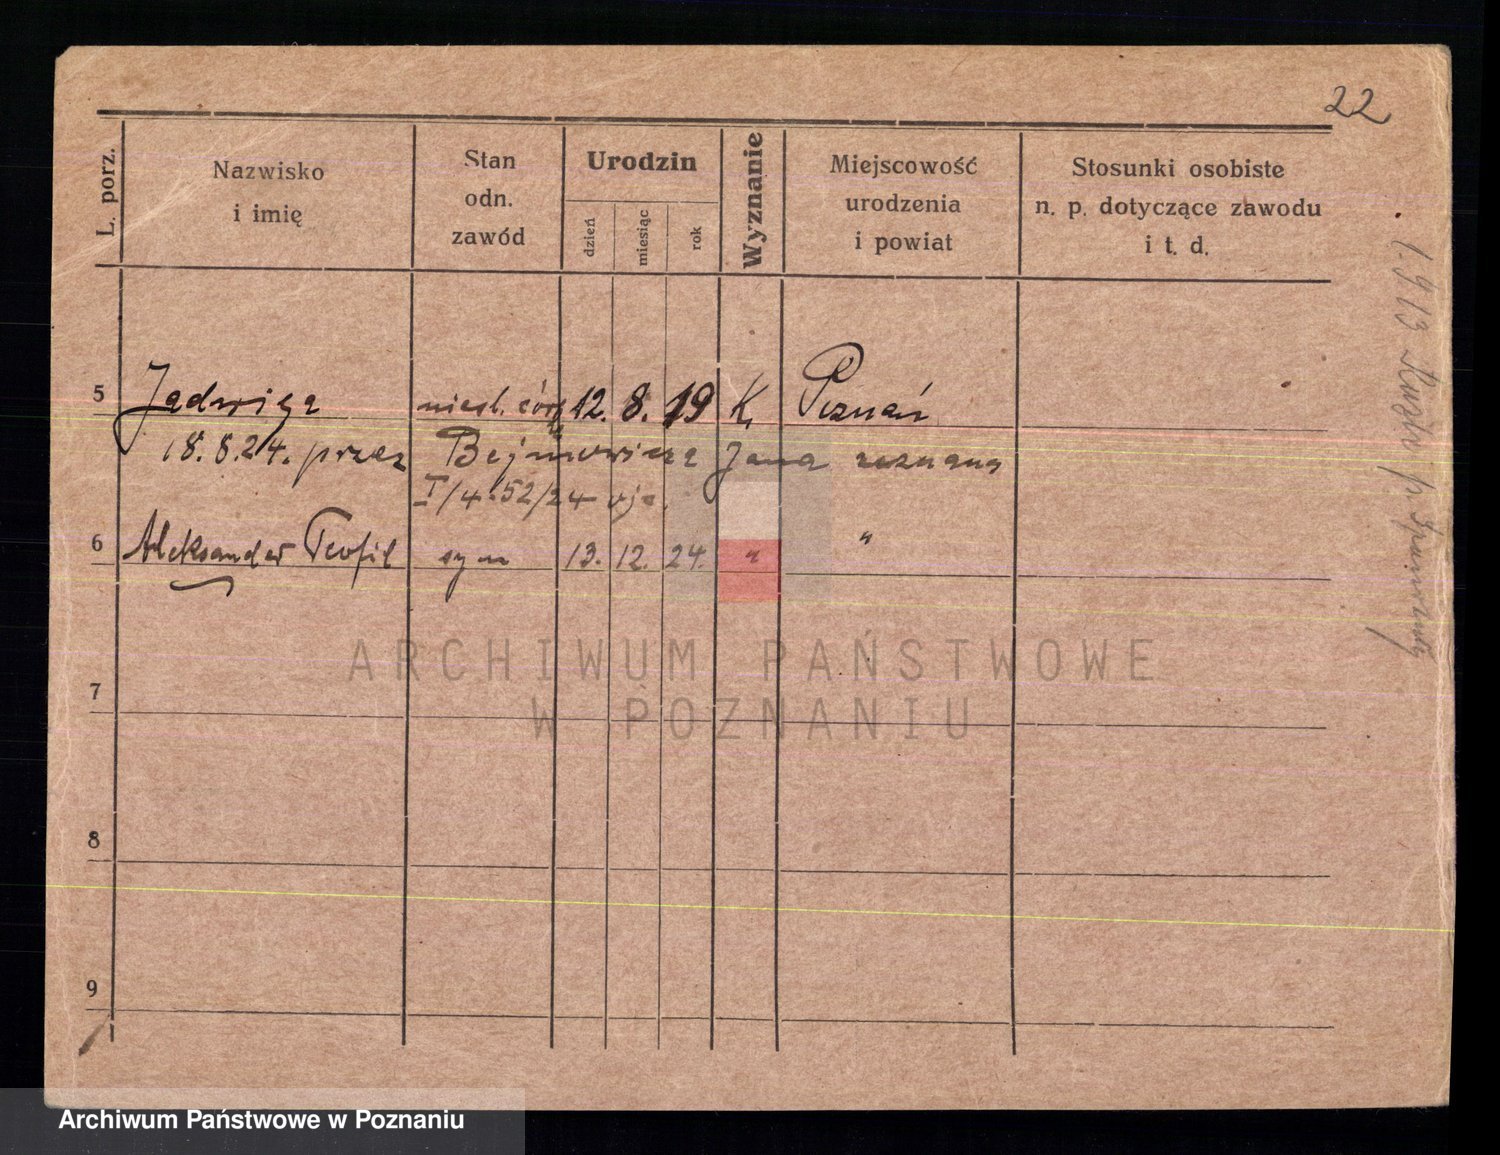 22
L. porz.
Nazwisko
i imię
Stan
odn.
zawód
Urodzin
dzień
miesiąc
rok
Wyznanie
Miejscowość
urodzenia
i powiat
Stosunki osobiste
n. p. dotyczące zawodu
i t. d.
5 Jadwiga niesl. córg 12. 8. 19 K, Poznań
18. 8. 24. przez Bejmowicza Jana uznana
I/4-52/24
6 Aleksander Teofil syn 13. 12. 24. " "
7
8
9
ARCHIWUM PAŃSTWOWE
W POZNANIU
Archiwum Państwowe w Poznaniu